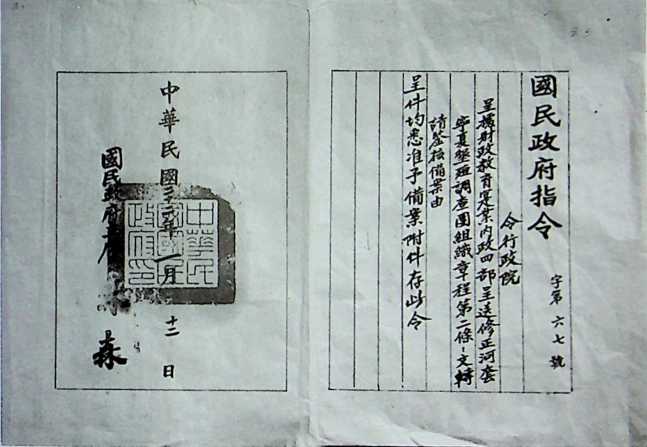 國民政府指令
字第六七號
令行政院
呈據財政教育實業內政四部呈送修正河套
寧夏墾殖調查團組織章程第二條一文轉
請鑒核備案由
呈件均悉准予備案附件存此令
中華民國年一月十二日
國民政府
森
中華民
國國民
政府印